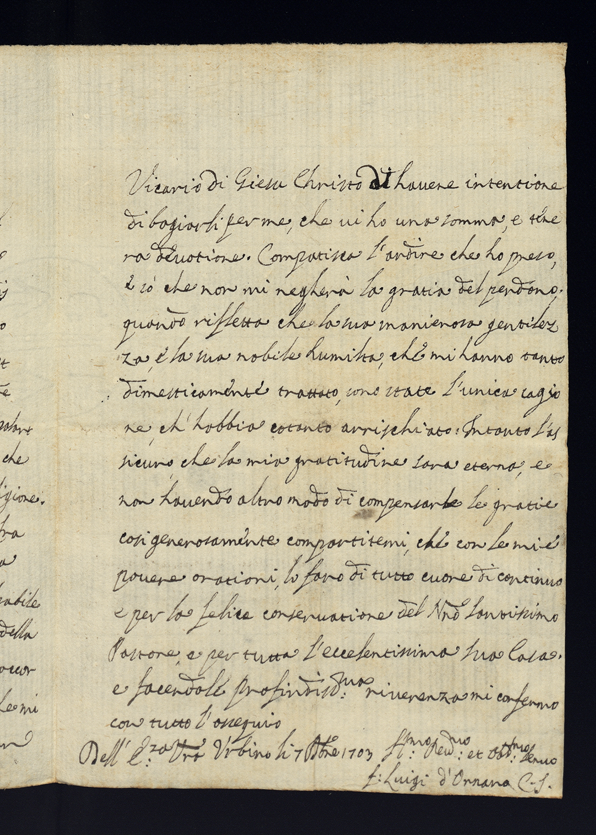 Vicario di Giesu Christo di havere intentione
di bagiarli per me, che vi ho una somma, e tene
ra devotione. Compatisca l'ardire che ho preso,
e sò che non mi negherà la gratia del perdono,
quando rifletta che la sua manierosa gentilez
za, e la sua nobile humiltà, che mi hanno tanto
dimesticamente trattato, sono state l'unica cagio
ne, ch'habbia cotanto arrischiato: Intanto l'as
sicuro che la mia gratitudine sara eterna, e
non havendo altro modo di compensarle le gratie
cosi generosamente compartitemi, che con le mie
povere orationi, lo faro di tutto cuore di continuo
e per la felice conservatione del Nrō Santissimo
Pastore, e per tutta l'eccelentissima sua Casa.
e facendole profondiss:ma riverenza mi confermo
con tutto l'ossequio
Dell' E:za Vrā Urbino li 7 1703 et servo
f: Luigi d'Ornano C.S.
della
che